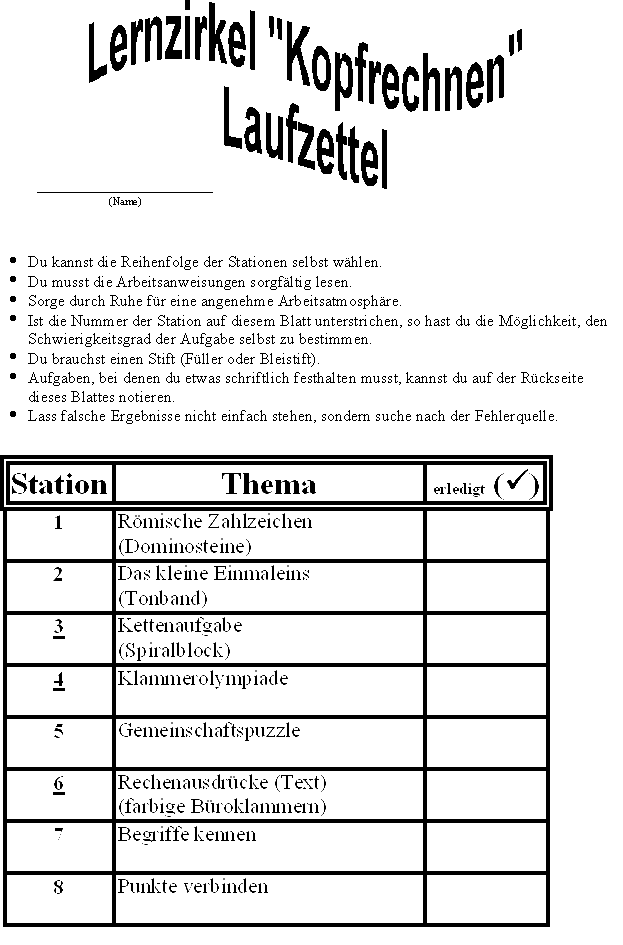 Lernzirkel "Kopfrechnen"
Laufzettel
(Name)
• Du kannst die Reihenfolge der Stationen selbst wählen.
• Du musst die Arbeitsanweisungen sorgfältig lesen.
• Sorge durch Ruhe für eine angenehme Arbeitsatmosphäre.
• Ist die Nummer der Station auf diesem Blatt unterstrichen, so hast du die Möglichkeit, den
Schwierigkeitsgrad der Aufgabe selbst zu bestimmen.
• Du brauchst einen Stift (Füller oder Bleistift).
• Aufgaben, bei denen du etwas schriftlich festhalten musst, kannst du auf der Rückseite
dieses Blattes notieren.
• Lass falsche Ergebnisse nicht einfach stehen, sondern suche nach der Fehlerquelle.
Station Thema erledigt (✓)
1 Römische Zahlzeichen
(Dominosteine)
2 Das kleine Einmaleins
(Tonband)
3 Kettenaufgabe
(Spiralblock)
4 Klammerolympiade
5 Gemeinschaftspuzzle
6 Rechenausdrücke (Text)
(farbige Büroklammern)
7 Begriffe kennen
8 Punkte verbinden